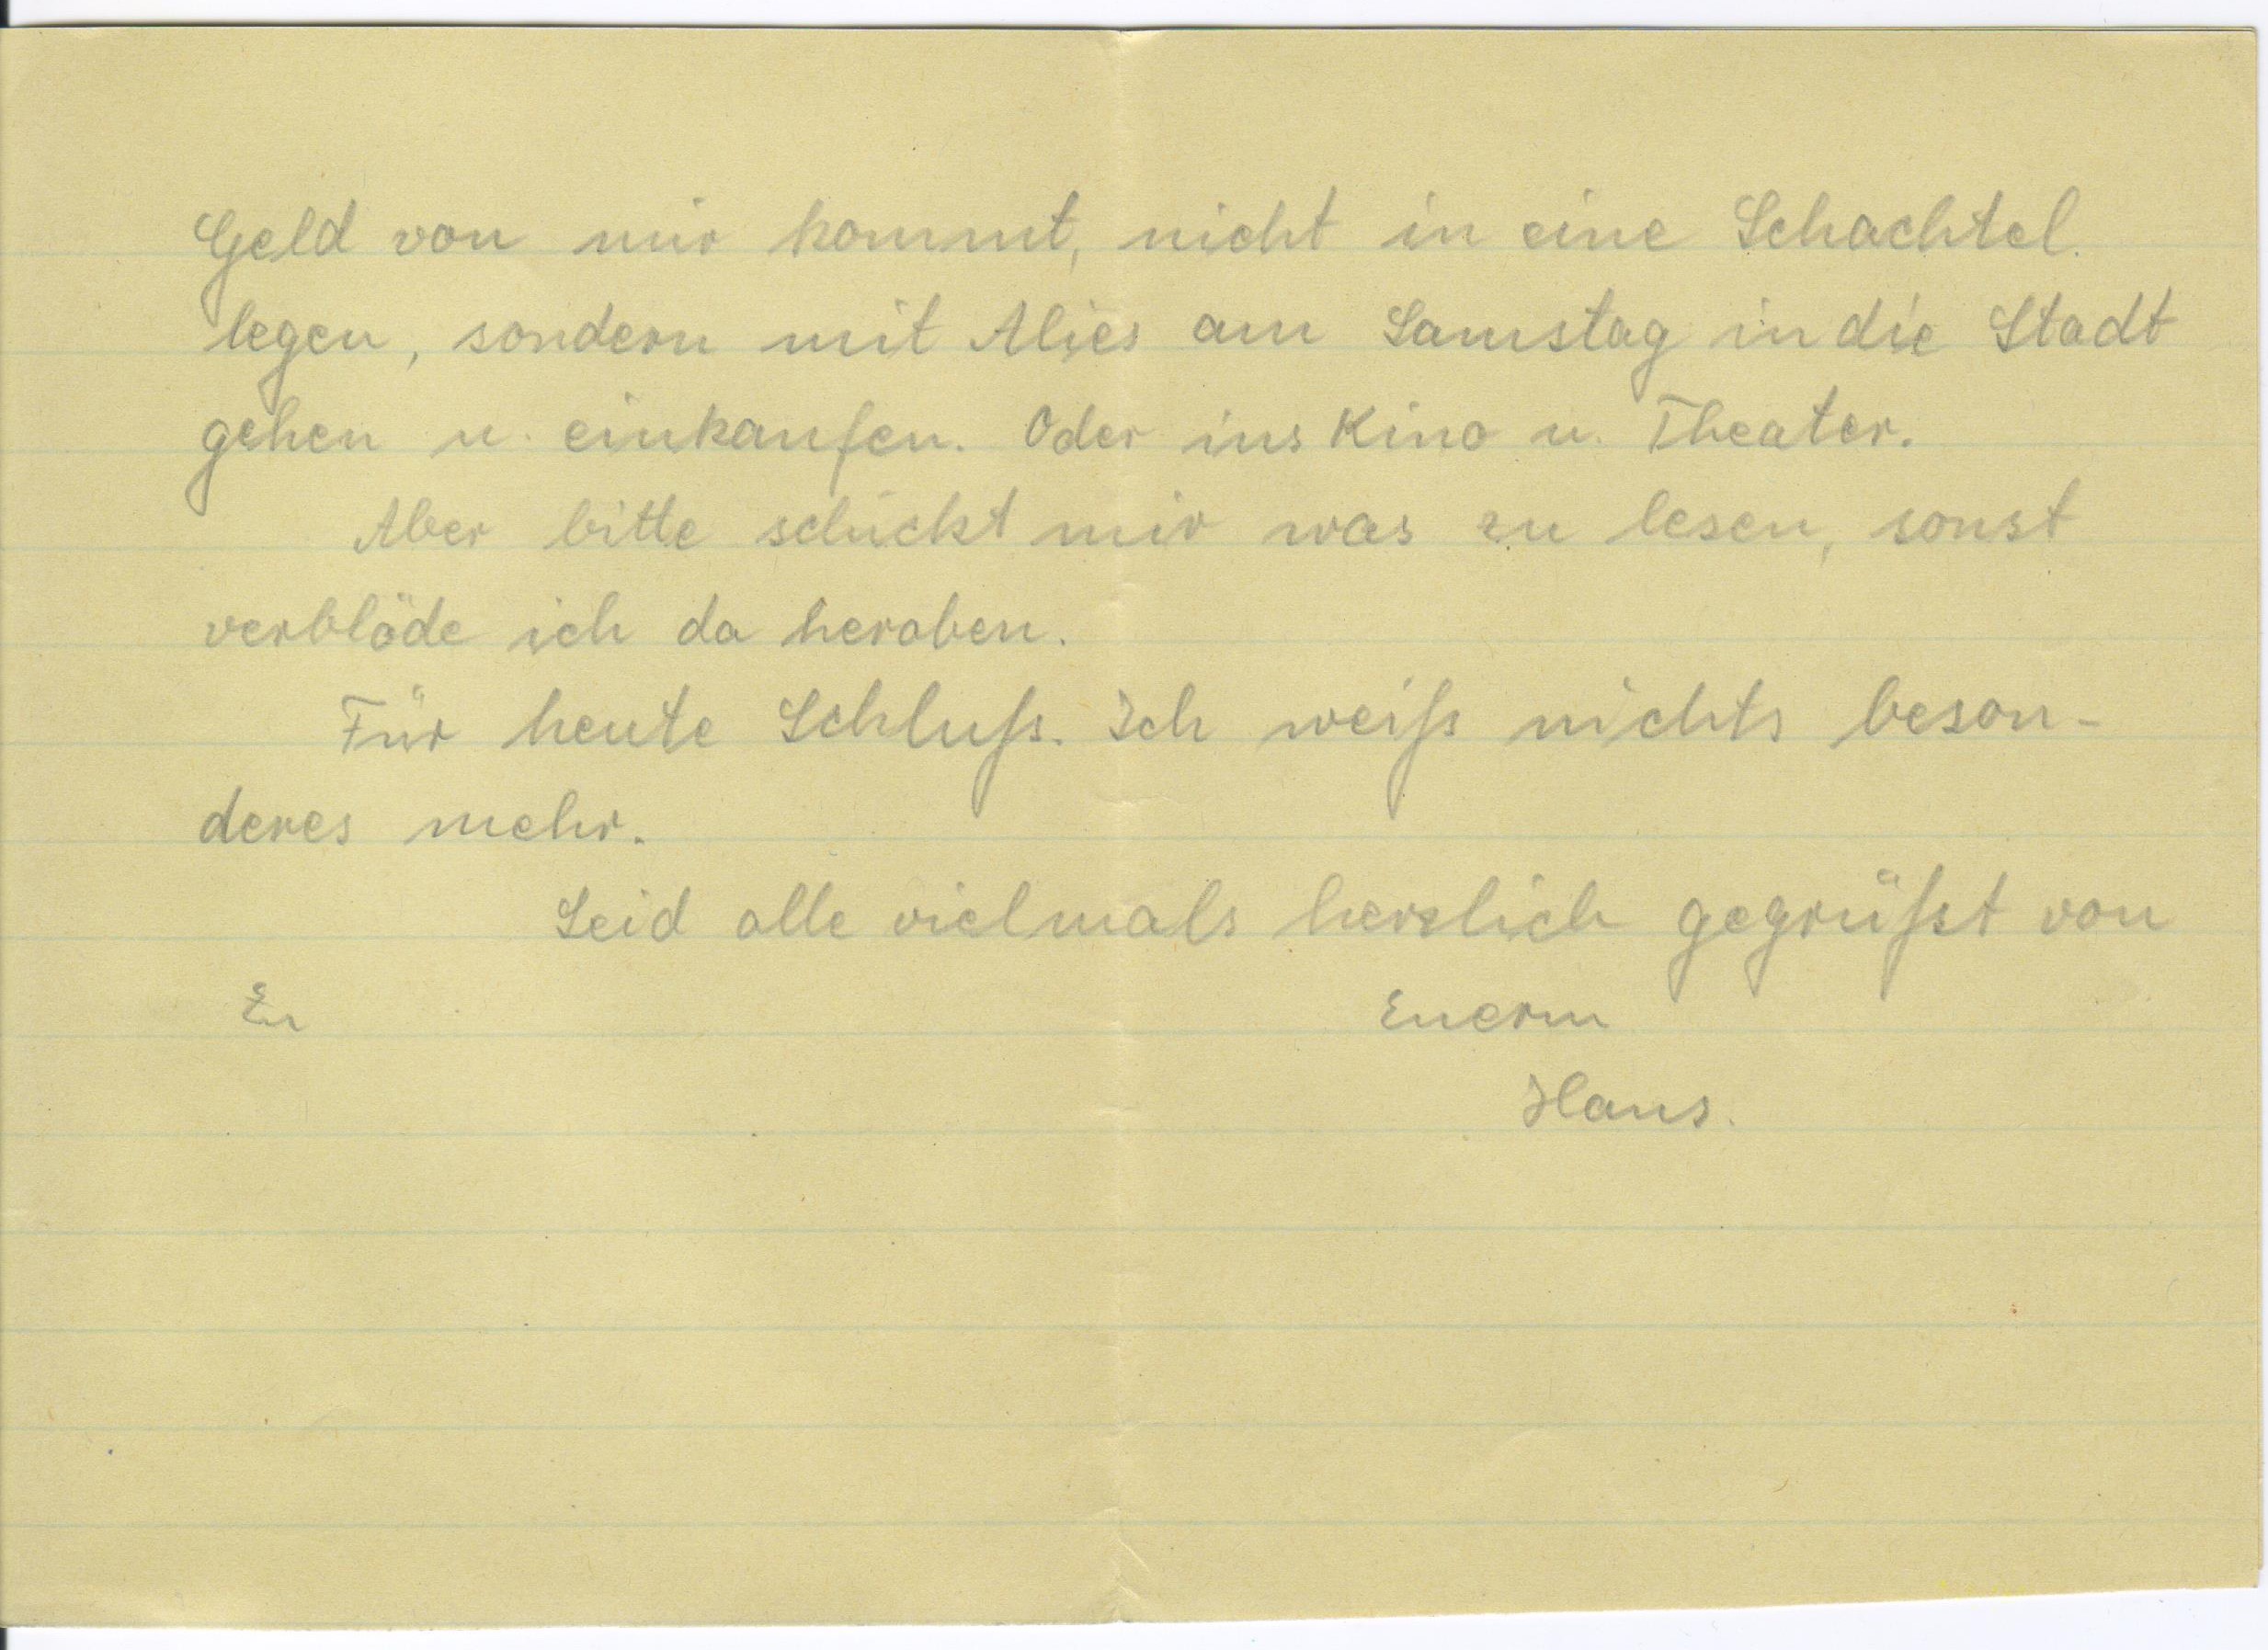 Geld von mir kommt, nicht in eine Schachtel.
legen, sondern mit Alies am Samstag in die Stadt
gehen u. einkaufen. Oder ins Kino u. Theater.
Aber bitte schickt mir was zu lesen, sonst
verblöde ich da heroben.
Für heute Schluß. Ich weiß nichts beson-
deres mehr.
Seid alle vielmals herzlich gegrüßt von
Eu Euerm
Hans.